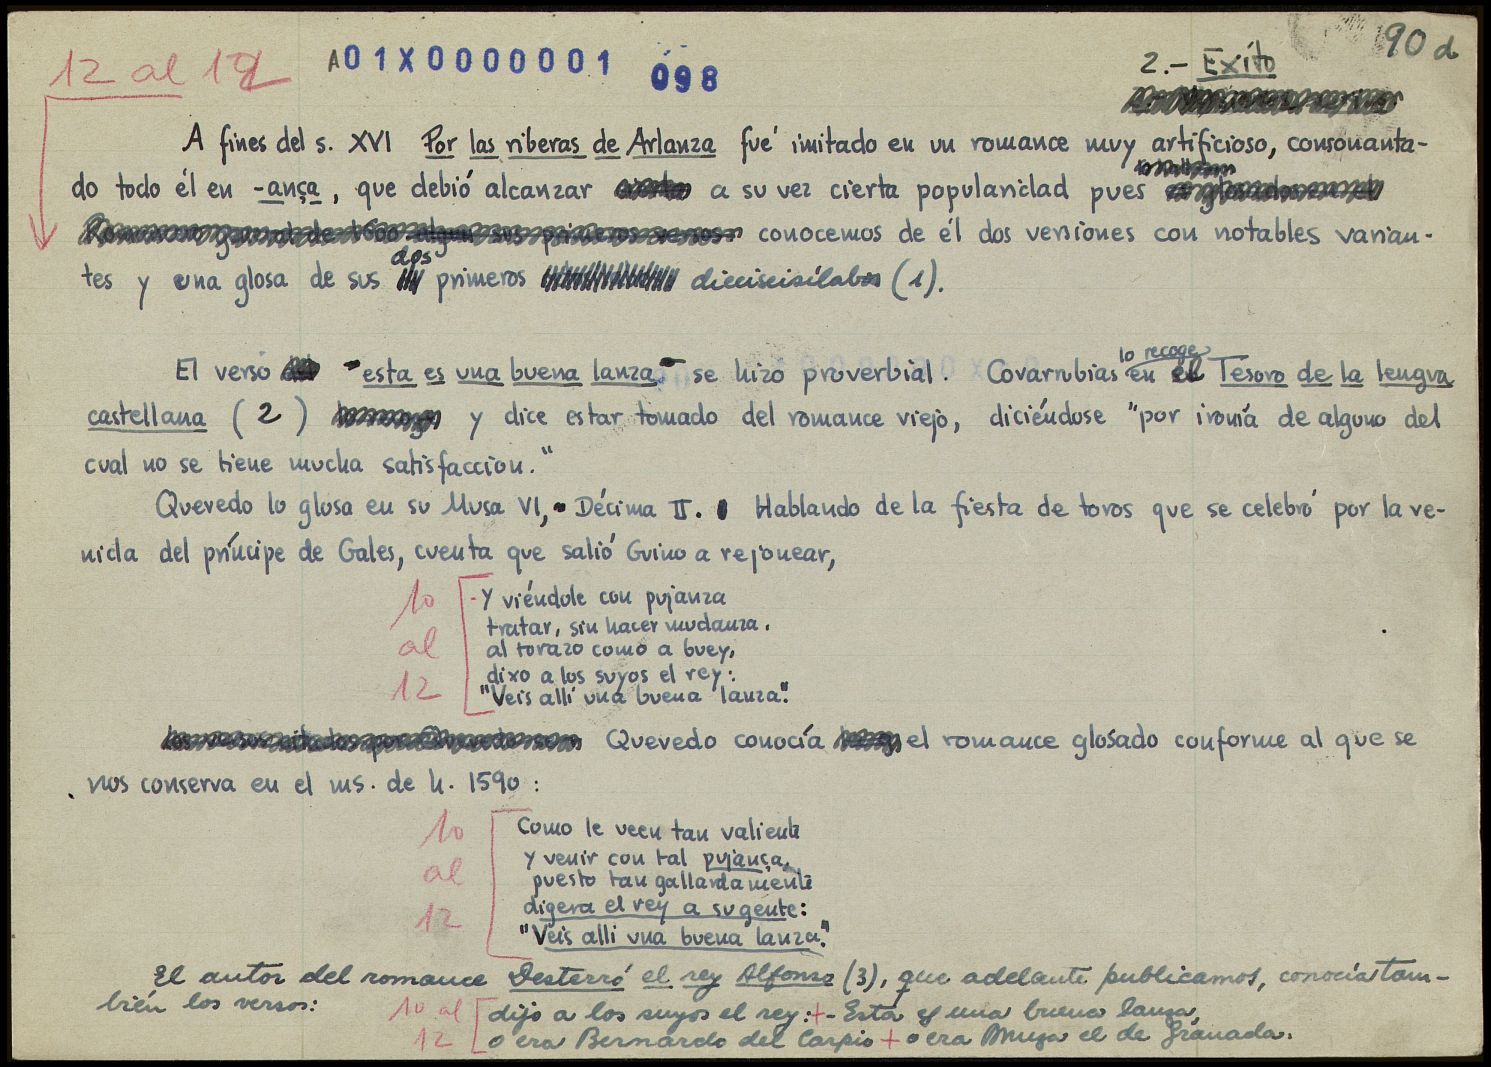 12 al 12
A01X0000000 1 098
2.- Exito
90 d
A fines del s. XVI Por las riberas de Arlanza fué imitado en un romance muy artificioso, consonanta-
do todo él en -ança, que debió alcanzar a su vez cierta popularidad pues
conocemos de él dos versiones con notables varian-
tes y una glosa de sus dos primeros dieciseisílabos (1).
El verso "esta es una buena lanza" se hizo proverbial. Covarrubias lo recoge en el Tesoro de la lengua
castellana (2) y dice estar tomado del romance viejo, diciéndose "por ironía de alguno del
cual no se tiene mucha satisfaccion."
Quevedo lo glosa en su Musa VI, Décima II. Hablando de la fiesta de toros que se celebró por la ve-
nida del príncipe de Gales, cuenta que salió Guino a rejonear,
10 al 12
-Y viéndole con pujanza
tratar, sin hacer mudanza,
al torazo como a buey,
dixo a los suyos el rey:
"Veis allí una buena lanza".
Quevedo conocía el romance glosado conforme al que se
nos conserva en el ms. de h. 1590:
10 al 12
Como le veen tan valiente
y venir con tal pujança,
puesto tan gallardamente
digera el rey a su gente:
"Veis alli una buena lanza".
El autor del romance Desterró el rey Alfonso (3), que adelante publicamos, conocía tam-
bién los versos:
10 al 12
dijo a los suyos el rey: + - Esta es una buena lança,
o era Bernardo del Carpio + o era Muza el de Granada.